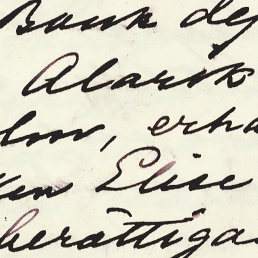 Bank de
Alarik
lm, erha
ken Elise
berättiga